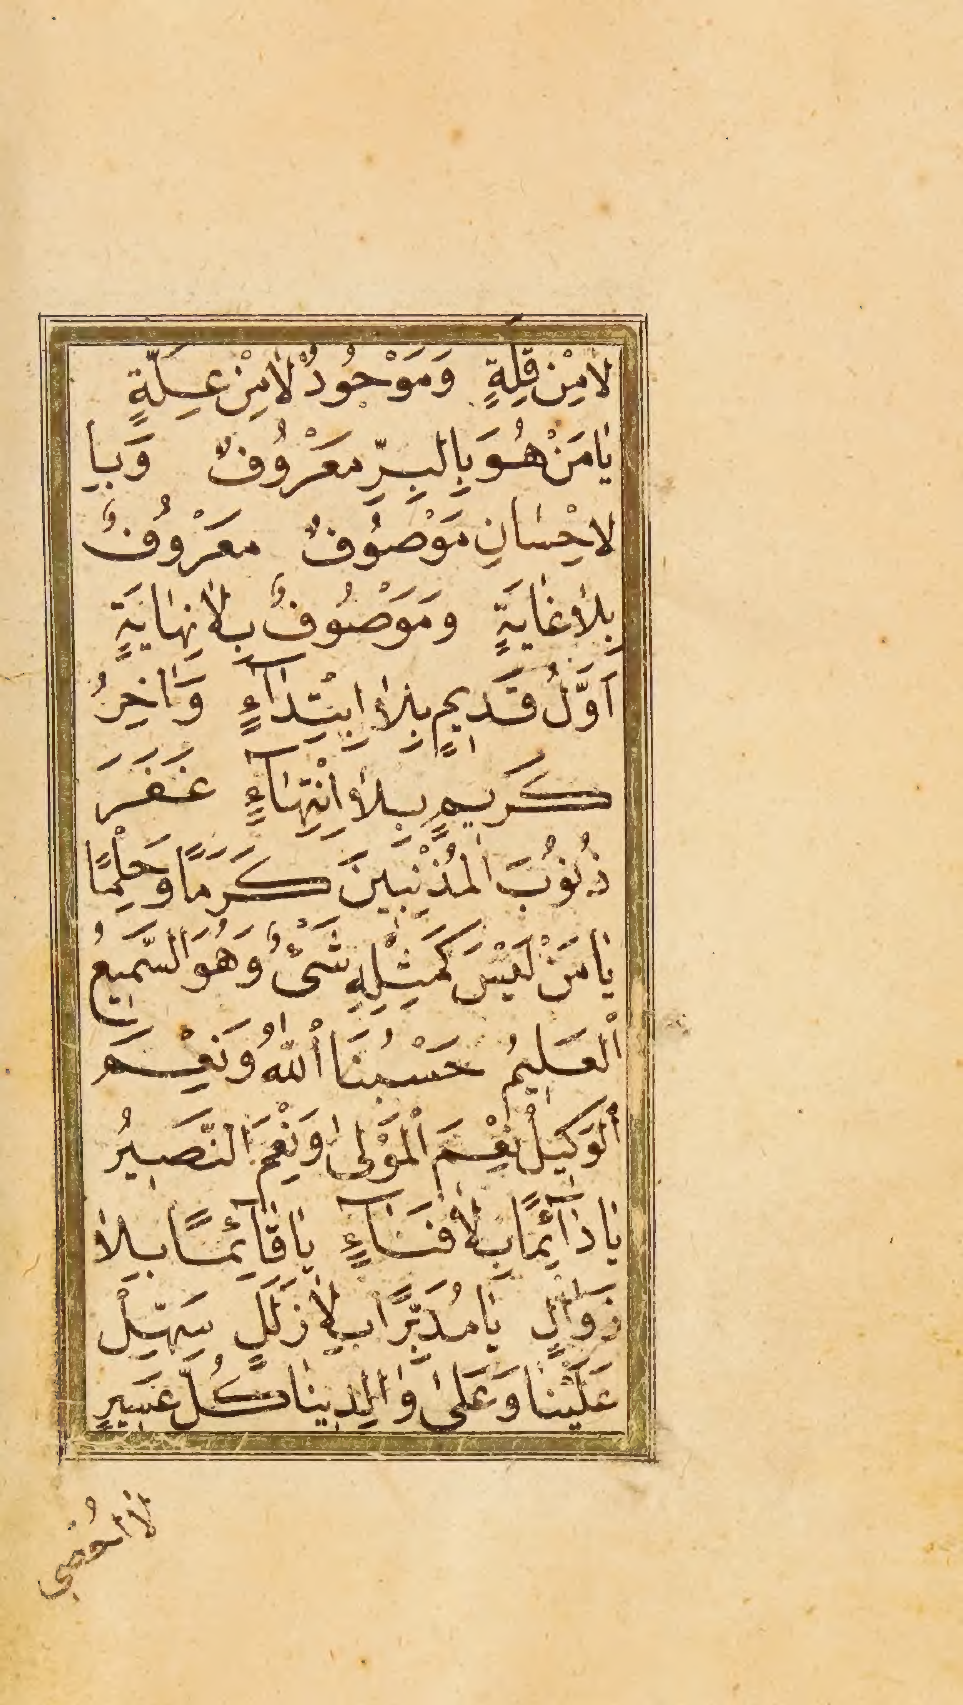 لَامِنْ قِلَّةٍ وَمَوْجُودٌ لَامِنْ عِلَّةٍ
يَامَنْ هُوَ بِالْبِرِّ مَعْرُوفٌ وَبِا
لاحِسَانِ مَوْصُوفٌ مَعْرُوفٌ
بِلَاغَايَةٍ وَمَوَصُوفٌ بِلَانِهَايَةٍ
آوَّلُ قَدِيمٍ بِلَا ابْتِدَآءٍ وَاٰخِرُ
كَرِيمٍ بِلَا انْتِهَآءٍ غَفَرَ
ذُنُوبَ الْمُذْنِبِينَ كَرَمًا وَحِلْمًا
يَامَنْ لَيْسَ كَمِثْلِهِ شَىْءٌ وَهُوَ السَّمِيعُ
الْعَلِيمُ حَسْبُنَا اللهُ وَنِعْمَ
الْوَكِيلُ نِعْمَ الْمَوْلٰى وَنِعْمَ النَّصِيرُ
يَادَآئِمًا بِلَا فَنَآءٍ يَاقَآئِمًا بِلَا
زَوَالٍ يَامُدَبِّرًا بِلَا زَلَلٍ سَهِّلْ
عَلَيْنَا وَعَلٰى وَالِدِينَا كُلَّ عَسِيرٍ
لَا اُحْصِى